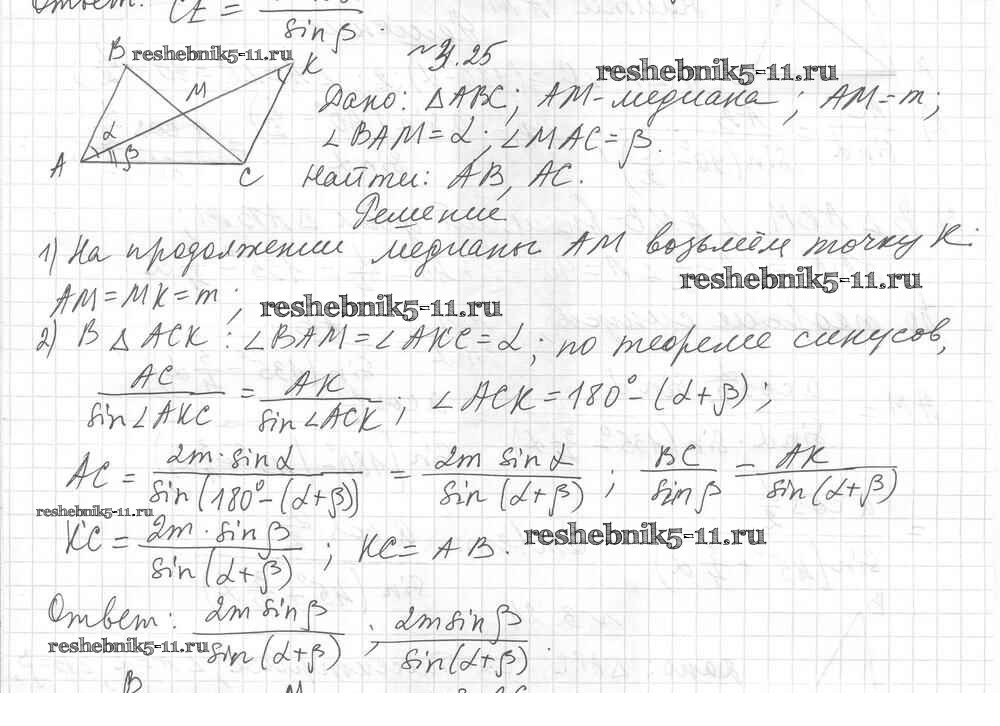 Ответ: CE =
sin β .
B reshebnik5-11.ru K
M
α
β
A
C
№ 3.25
reshebnik5-11.ru
Дано: △ABC; AM-медиана; AM=m;
∠BAM=α; ∠MAC=β.
Найти: AB, AC.
Решение
1) На продолжении медианы AM возьмём точку K:
reshebnik5-11.ru
AM=MK=m; reshebnik5-11.ru
2) В △ ACK: ∠BAM=∠AKC=α; по теореме синусов,
AC / sin∠AKC = AK / sin∠ACK ; ∠ACK=180°-(α+β);
AC = 2m·sinα / sin(180°-(α+β)) = 2m sinα / sin(α+β) ; BC / sinβ = AK / sin(α+β)
reshebnik5-11.ru
KC = 2m·sinβ / sin(α+β) ; KC=AB. reshebnik5-11.ru
Ответ: 2m sinβ / sin(α+β) ; 2m sinβ / sin(α+β) .
reshebnik5-11.ru
B M